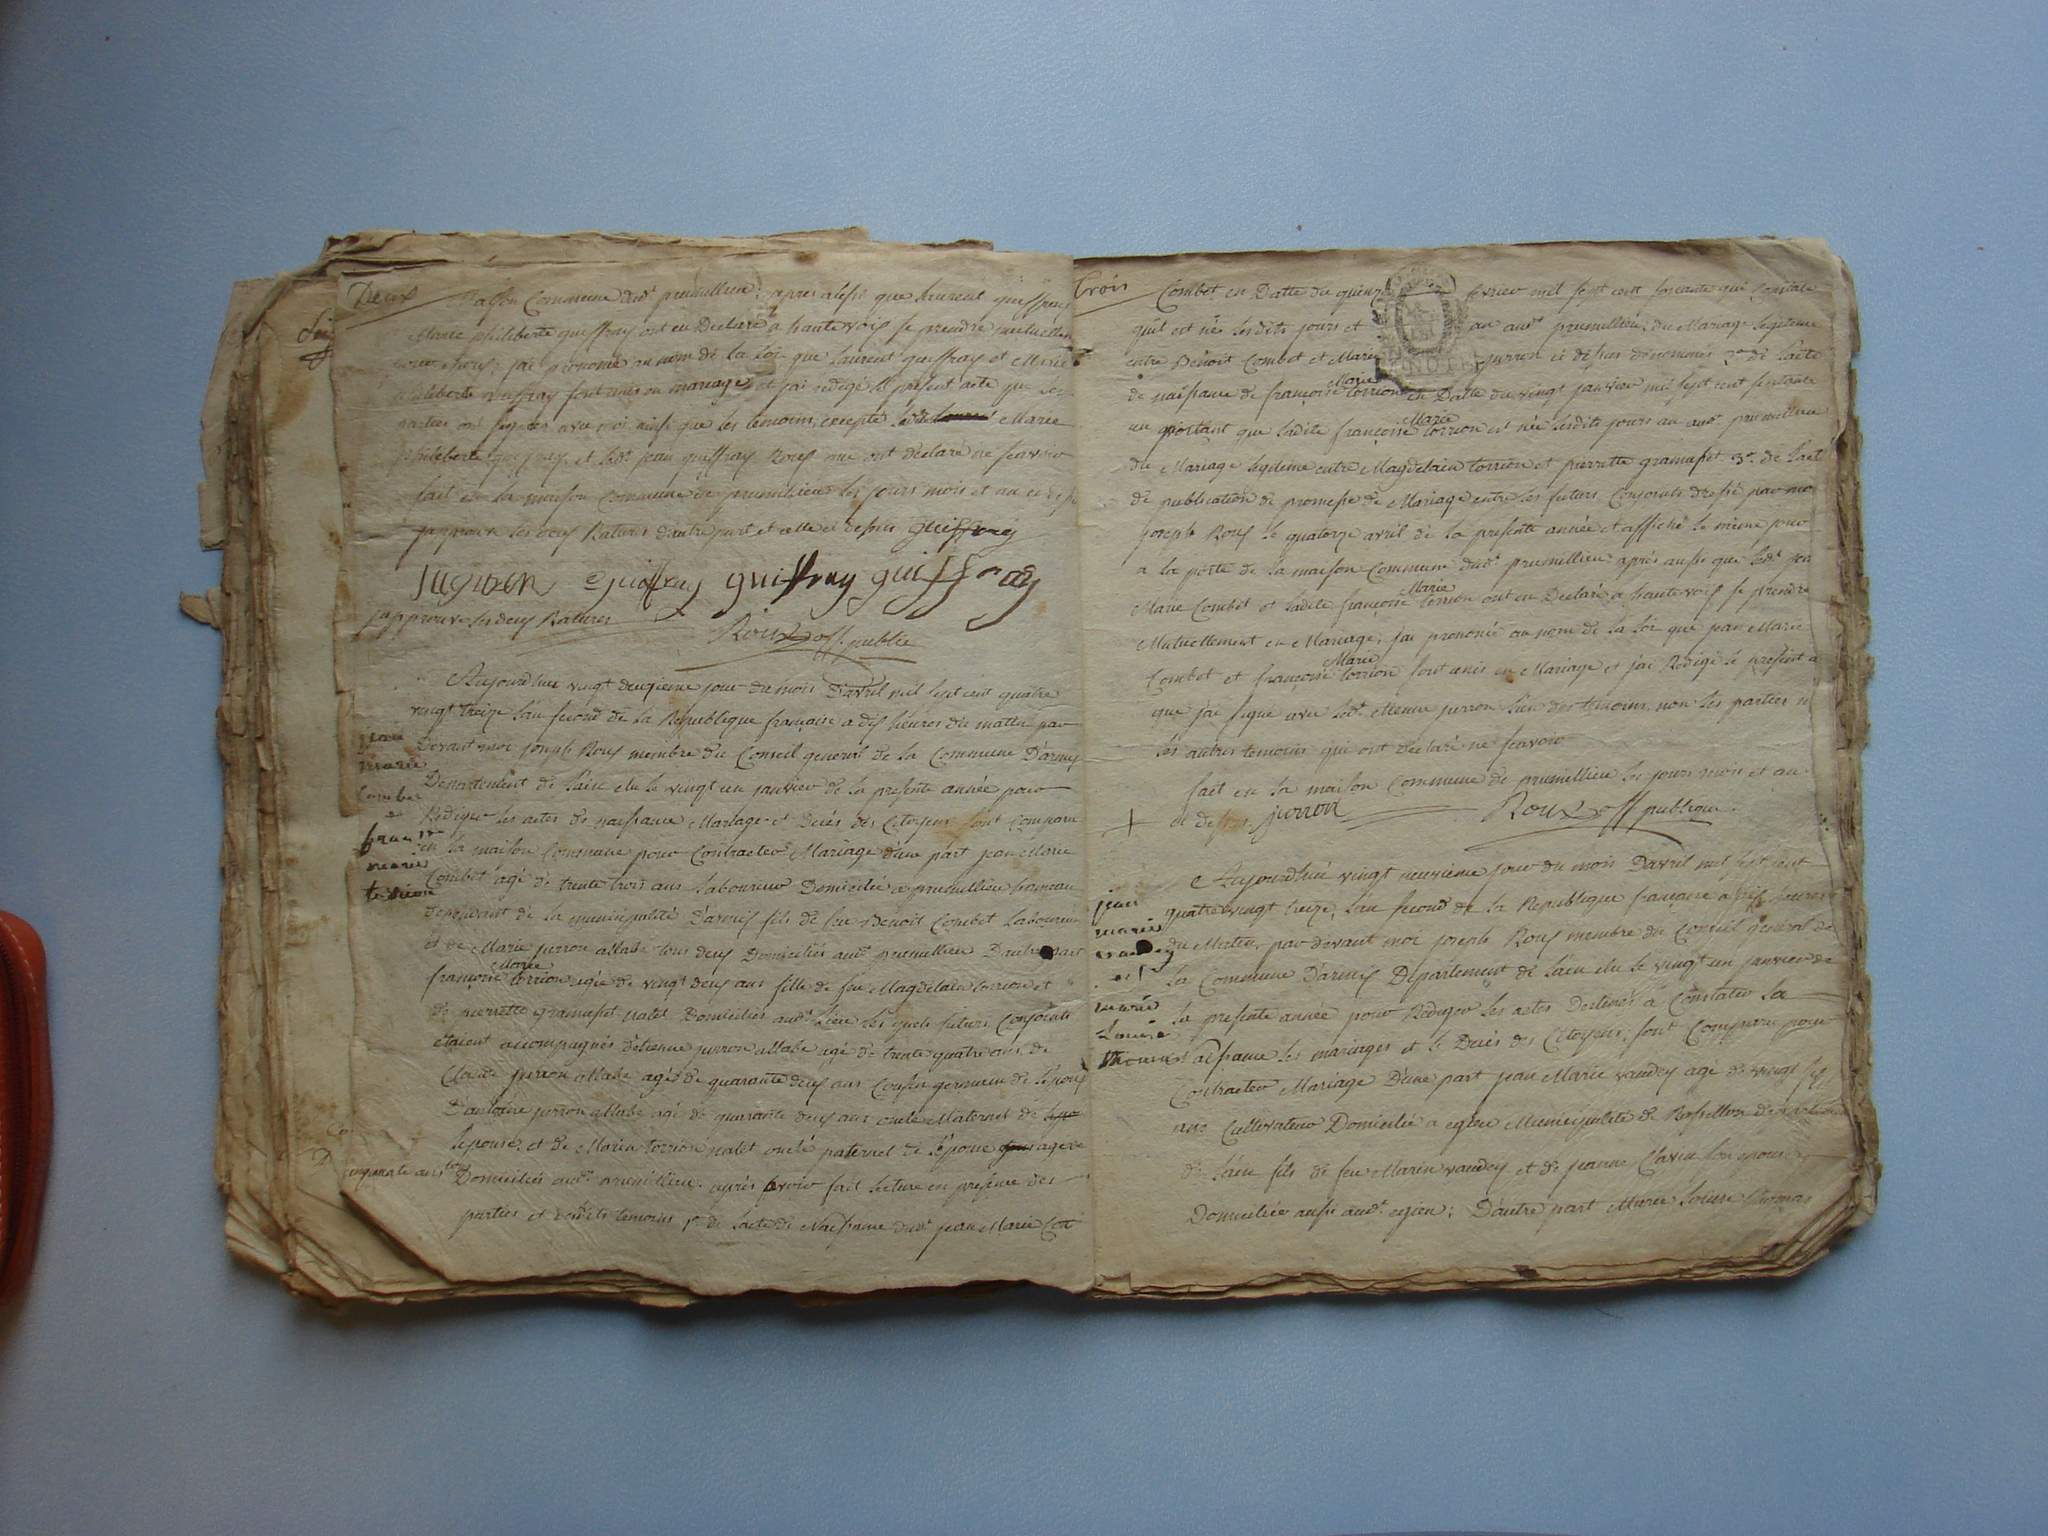 Deux
maison Commune dud.t prumillieu; apres aussi que laurent guiffray
Marie philiberte guiffray ont eu Declaré a haute voix se prendre mutuellem
j'ai prononcé au nom de la Loi que laurent guiffray et Marie
philiberte guiffray sont unis en mariage et j'ai redigé le present acte que les
parties ont signées avec moi ainsi que les temoins, excepté Marie
philiberte guiffray et led.t jean guiffray Roux que ont déclaré ne scavoir
fait en la maison Commune de prumillieu les jours mois et an
japprouve les deux Ratures d'autre part et celle ci dessus guiffray
jugnon guiffray guiffray guiffray
japprouve les deux Ratures
Roux off. publie
Aujourdhui vingt deuxieme jour du mois D'avril mil sept cent quatre
vingt treize l'an second de la Republique française a dix heures du matin par
Devant moi joseph Roux membre du Conseil general de la Commune D'armix
Departement de l'ain elu le vingt un janvier de la presente année pour
Rediger les actes de naissance Mariage et Decès des Citoyens sont Comparu
en la maison Commune pour Contracter Mariage d'une part jean Marie
Combet agé de trente trois ans Laboureur Domicilié a prumillieu hameau
dependant de la municipalité D'armix fils de feu Benoit Combet Laboureur
et de Marie jurron allabe tous deux Domiciliés aud.t prumillieu D'autre part
Marie
françoise torrion agée de vingt deux ans fille de feu Magdelain torrion et
de pierrette gramuset natel Domiciliés aud.t Lieu les quels futurs Conjoints
étaient accompagnés d'étienne jurron allabe agé de trente quatre ans de
Claude jurron allabe agé de quarante deux ans Cousin germain de l'epoux
D'antoine jurron allabe agé de quarante deux ans oncle Maternel de
l'epouse et de Marin torrion natel oncle paternel de l'épouse agée
cinquante ans tous Domiciliés aud.t prumillieu. après avoir fait lecture en presence des
parties et desdits temoins 1.o de l'acte de Naissance dud.t jean Marie Com
jean
marie
Combet
et
francoise
marie
torrion
trois
Combet en Datte du quinze fevrier mil sept cent soixante qui
qu'il est né lesdits jours et an aud.t prumillieu, du Mariage legitime
entre Benoit Combet et Marie jurron ci dessus dénommés 2.o de l'acte
Marie
de naissance de françoise torrion en Datte du vingt janvier mil sept cent septante
Marie
un portant que ladite françoise torrion est née lesdits jours an aud.t prumillieu
du Mariage legitime entre Magdelain torrion et pierrette gramuset 3.o de l'act
de publication de promesse de Mariage entre les futurs Conjoints dressé par moi
joseph Roux le quatorze avril de la presente année et affiché le même jour
a la porte de la maison Commune dud.t prumillieu après aussi que led.t jean
Marie
Marie Combet et ladite françoise torrion ont eu Declaré a haute voix se prendre
Mutuellement en Mariage, j'ai prononcé au nom de la loi que jean Marie
Marie
Combet et françoise torrion sont unis en Mariage et j'ai Redigé le present a
que j'ai signé avec led.t etienne jurron l'un des temoins non les parties ni
les autres temoins qui ont declaré ne scavoir
fait en la maison Commune de prumillieu les jours mois et an
ci dessus. jurron Roux off publique.
Aujourdhui vingt neuvieme jour du mois D'avril mil sept cent
quatre vingt treize, l'an second de la Republique française a dix heures
du Matin, par devant moi joseph Roux membre du Conseil general de
la Commune D'armix Departement de l'ain elu le vingt un janvier de
la presente année pour Rediger les actes destinés a Constater la
naissance les mariages et le Decès des Citoyens, sont Comparu pour
Contracter Mariage D'une part jean Marie vaudey agé de vingt
ans Cultivateur Domicilié a egieu Municipalité de Rossillon departement
de l'ain fils de feu Marin vaudey et de jeanne Clavin son epouse
Domiciliée aussi aud.t egieu; D'autre part Marie louise thomas
jean
marie
vaudey
et
marie
Louise
thomas